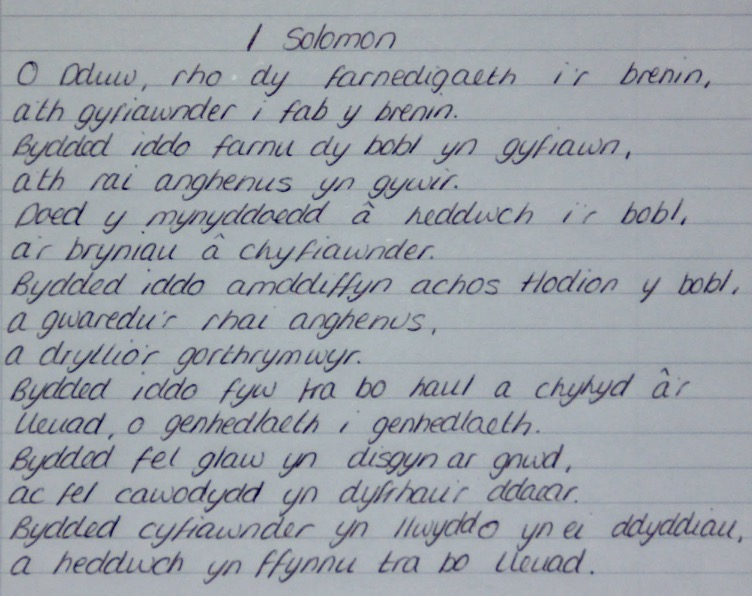 I Solomon
O Dduw, rho dy farnedigaeth i'r brenin,
a'th gyfiawnder i fab y brenin.
Bydded iddo farnu dy bobl yn gyfiawn,
a'th rai anghenus yn gywir.
Doed y mynyddoedd â heddwch i'r bobl,
a'r bryniau â chyfiawnder.
Bydded iddo amddiffyn achos tlodion y bobl,
a gwaredu'r rhai anghenus,
a dryllio'r gorthrymwyr.
Bydded iddo fyw tra bo haul a chyhyd â'r
lleuad, o genhedlaeth i genhedlaeth.
Bydded fel glaw yn disgyn ar gnwd,
ac fel cawodydd yn dyfrhau'r ddaear.
Bydded cyfiawnder yn llwyddo yn ei ddyddiau,
a heddwch yn ffynnu tra bo lleuad.